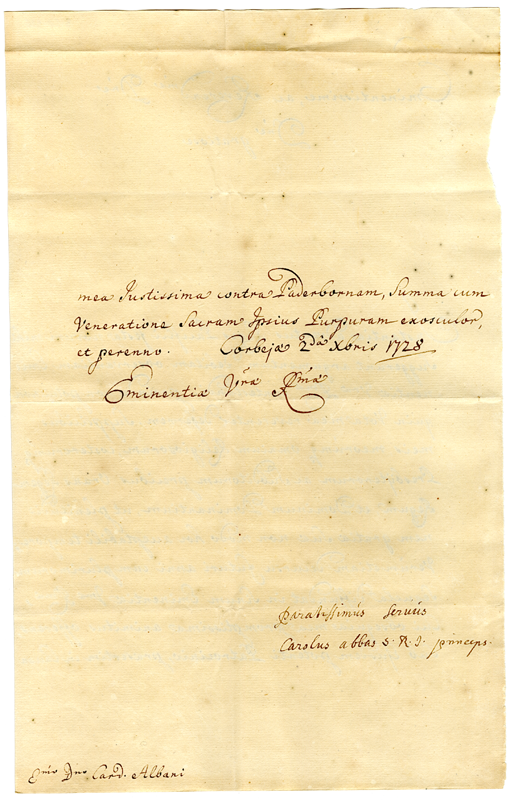 mea Justissima contra Paderbornam, Summa cum
Veneratione Sacram Ipsius Purpuram exosculor,
et perenno. Corbejæ 2da Xbris 1728
Eminentiæ Vræ Rmæ
paratissimus servus
Carolus abbas S. R. I. princeps.
Emo Dno Card. Albani